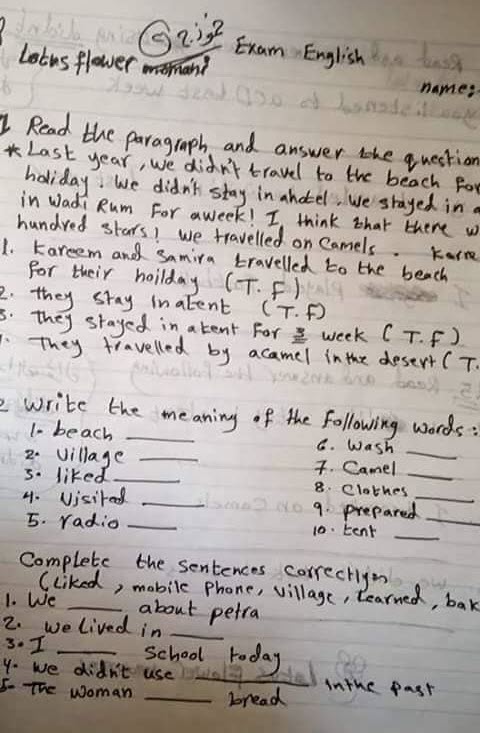 Exam English
Lotus flower
name:
1 Read the paragraph and answer the question
* Last year, we didn't travel to the beach for
holiday. We didn't stay in ahotel. We stayed in a
in Wadi Rum For aweek! I think that there w
hundred stars! We travelled on Camels. Karee
1. Kareem and Samira travelled to the beach
for their hoilday (T.F)
2. they stay in atent (T.F)
3. They stayed in a tent For 3 week (T.F)
They travelled by acamel in the desert (T.
Write the meaning of the following words:
1- beach ____
2. Village ____
3. liked ____
4. Visited ____
5. radio ____
6. Wash ____
7. Camel ____
8. Clothes ____
9. prepared ____
10. tent ____
Complete the sentences correctly
(Liked, mobile Phone, Village, Learned, bak
1. We ____ about petra
2. we Lived in ____
3. I ____ School today
4. we didn't use ____ in the past
5- The woman ____ bread